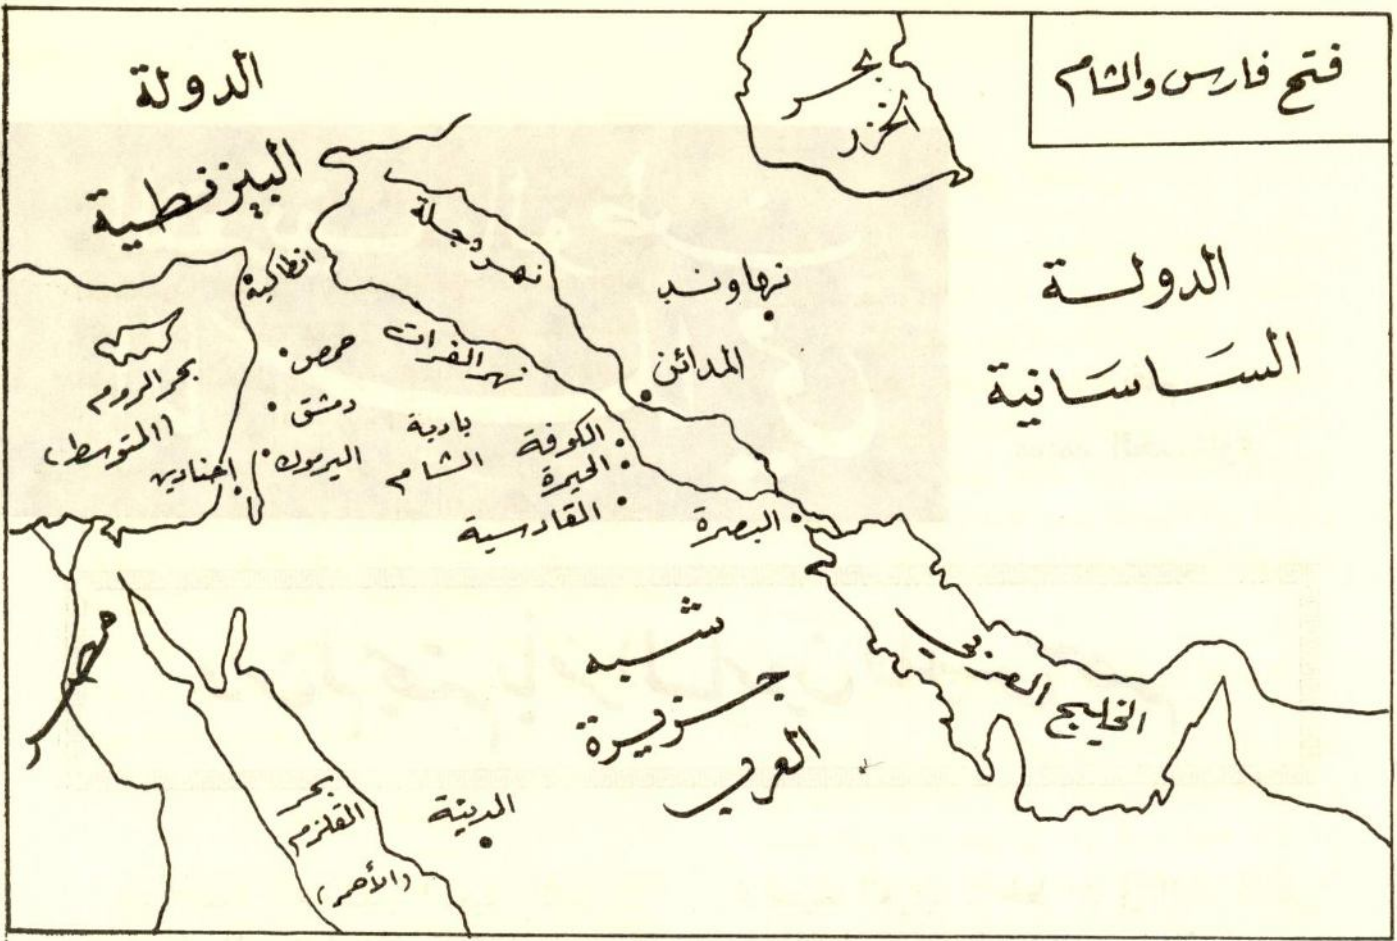 فتح فارس والشام
الدولة
البيزنطية
بحر
الخزر
الدولة
الساسانية
نهر دجلة
نهاوند
المدائن
انطاكية
نهر الفرات
حمص
دمشق
اليرموك
اجنادين
بحر الروم
(المتوسط)
بادية
الشام
الكوفة
الحيرة
القادسية
البصرة
مصر
شبه
جزيرة
العرب
الخليج العربي
المدينة
بحر
القلزم
(الأحمر)